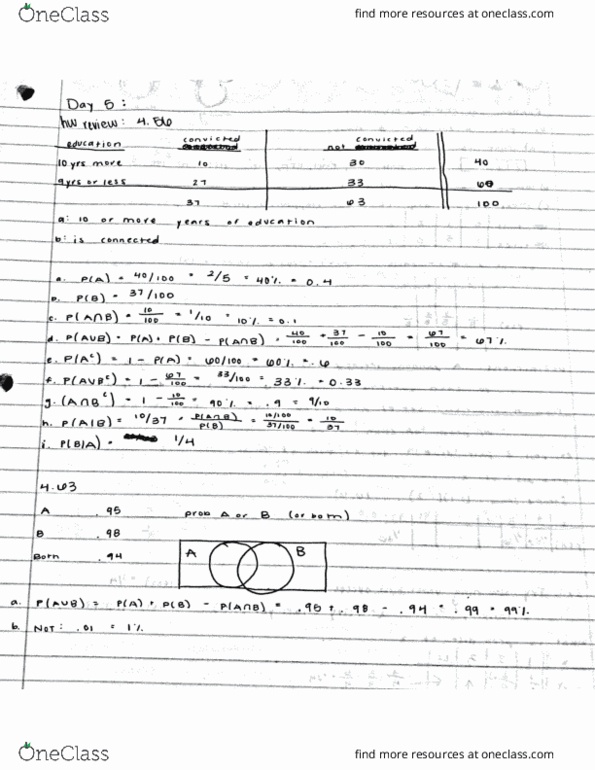 OneClass
find more resources at oneclass.com
Day 5:
hw review: 4.56
education convicted not convicted
10 yrs more 10 30 40
9yrs or less 27 33 60
37 63 100
a: 10 or more years of education
b: is connected
a. P(A) = 40/100 = 2/5 = 40% = 0.4
b. P(B) = 37/100
c. P(A∩B) = 10/100 = 1/10 = 10% = 0.1
d. P(A∪B) = P(A) + P(B) - P(A∩B) = 40/100 + 37/100 - 10/100 = 67/100 = 67%
e. P(Aᶜ) = 1 - P(A) = 60/100 = 60% = .6
f. P(A∪Bᶜ) = 1 - 67/100 = 33/100 = 33% = 0.33
g. (A∩Bᶜ) = 1 - 10/100 = 90% = .9 = 9/10
h. P(A|B) = 10/37 = P(A∩B)/P(B) = 10/100/37/100 = 10/37
i. P(B|A) = 1/4
4.63
A .95 prob A or B (or both)
B .98
Both .94 A B
a. P(A∪B) = P(A) + P(B) - P(A∩B) = .95 + .98 - .94 = .99 = 99%
b. NOT: .01 = 1%
OneClass
find more resources at oneclass.com